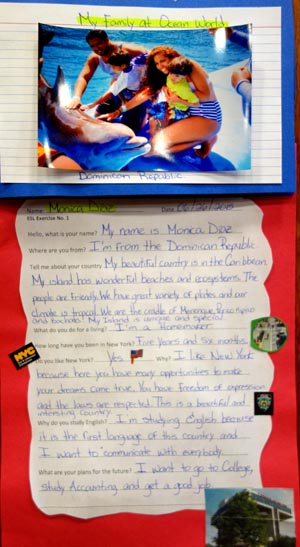 My Family at Ocean World
Dominican Republic.
Name: Monica Diaz Date: 06/26/2015
ESL Exercise No. 1
Hello, what is your name? My name is Monica Diaz
Where are you from? I'm from the Dominican Republic.
Tell me about your country My beautiful country is in the Caribbean.
My island has wonderful beaches and ecosystems. The
people are friendly. We have great variety of plates and our
climate is tropical. We are the cradle of Merengue,
and bachata. My Island is unique and special.
What do you do for a living? I'm a Homemaker.
How long have you been in New York? Five Years and Six months.
Do you like New York? Yes Why? I like New York
because here you have many opportunities to make
your dreams come true. You have freedom of expression
and the laws are respected. This is a beautiful and
interesting Country.
Why do you study English? I'm studying English because
it is the first language of this country and
I want to "communicate with everybody.
What are your plans for the future? I want to go to College,
study Accounting and get a good job.
NYC